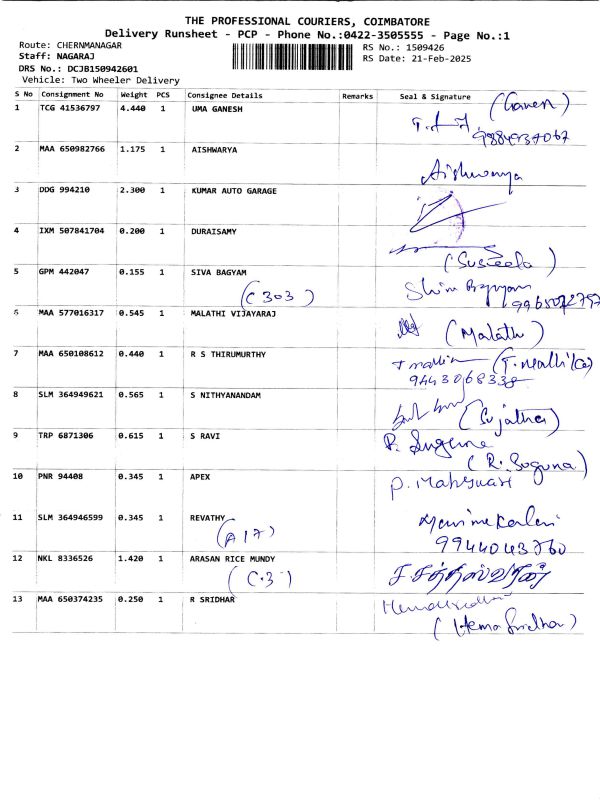 THE PROFESSIONAL COURIERS, COIMBATORE
Delivery Runsheet - PCP - Phone No.:0422-3505555 - Page No.:1
Route: CHERNMANAGAR RS No.: 1509426
Staff: NAGARAJ RS Date: 21-Feb-2025
DRS No.: DCJB150942601
Vehicle: Two Wheeler Delivery
S No Consignment No Weight PCS Consignee Details Remarks Seal & Signature
1 TCG 41536797 4.440 1 UMA GANESH
2 MAA 650982766 1.175 1 AISHWARYA
Aishwarya
3 DDG 994210 2.300 1 KUMAR AUTO GARAGE
4 IXM 507841704 0.200 1 DURAISAMY
(Suseela)
5 GPM 442047 0.155 1 SIVA BAGYAM
(C 303)
6 MAA 577016317 0.545 1 MALATHI VIJAYARAJ
(Malathi)
7 MAA 650108612 0.440 1 R S THIRUMURTHY
9443068338
8 SLM 364949621 0.565 1 S NITHYANANDAM
(Sujatha)
9 TRP 6871306 0.615 1 S RAVI
(R. Suguna)
10 PNR 94408 0.345 1 APEX
11 SLM 364946599 0.345 1 REVATHY
(A 17)
9944043760
12 NKL 8336526 1.420 1 ARASAN RICE MUNDY
13 MAA 650374235 0.250 1 R SRIDHAR
(Hema Sridhar)